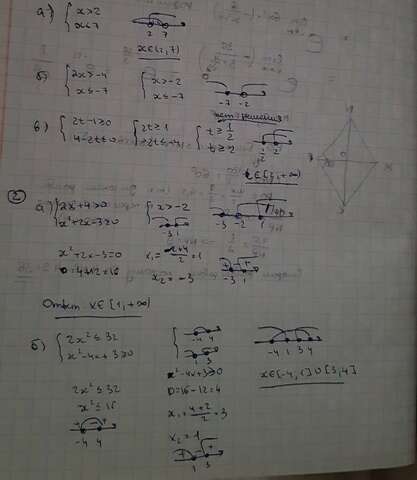 а) { x>2
x≤7
2 7
x∈(2,7)
б) { 2x>-4
x≤-7
{ x>-2
x≤-7
-7 -2
нет решения
в) { 2t-1≥0
4-2t≤0
{ 2t≥1
{ t≥1/2
t≥2
1/2 2
2
а) { 2x+4>0
x²+2x-3≥0
{ x>-2
-3 1
-3 -2 1
x²+2x-3=0
D=4+12=16
x₁=-2+4/2=1
x₂=-3
-3 1
Ответ x∈[1,+∞)
б) { 2x²≤32
x²-4x+3≥0
{ -4 4
1 3
-4 1 3 4
2x²≤32
x²≤16
+ - +
-4 4
x²-4x+3≥0
D=16-12=4
x₁=4+2/2=3
x₂=1
+ - +
1 3
x∈[-4,1]∪[3,4]